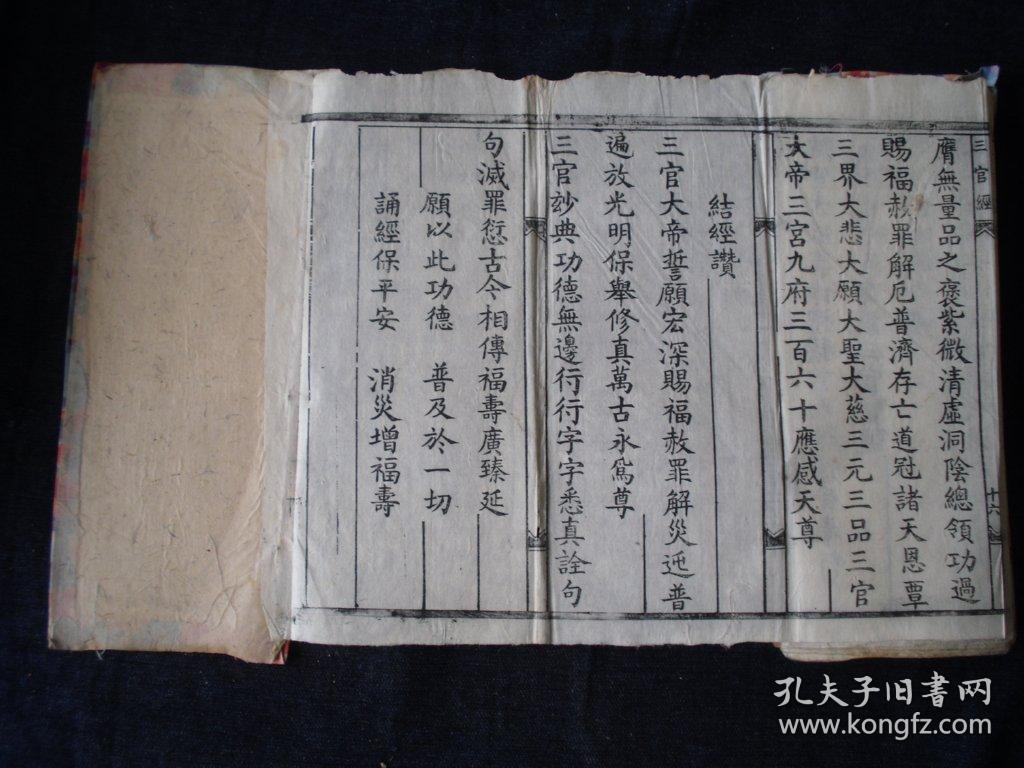 三官經
十六
膺無量品之褒紫微清虛洞陰總領功過
賜福赦罪解厄普濟存亡道冠諸天恩覃
三界大悲大願大聖大慈三元三品三官
大帝三宮九府三百六十應感天尊
結經讚
三官大帝誓願宏深賜福赦罪解災迍普
遍放光明保舉修真萬古永爲尊
三官妙典功德無邊行行字字悉真詮句
句滅罪愆古今相傳福壽廣臻延
願以此功德 普及於一切
誦經保平安 消災增福壽
孔夫子旧书网
www.kongfz.com